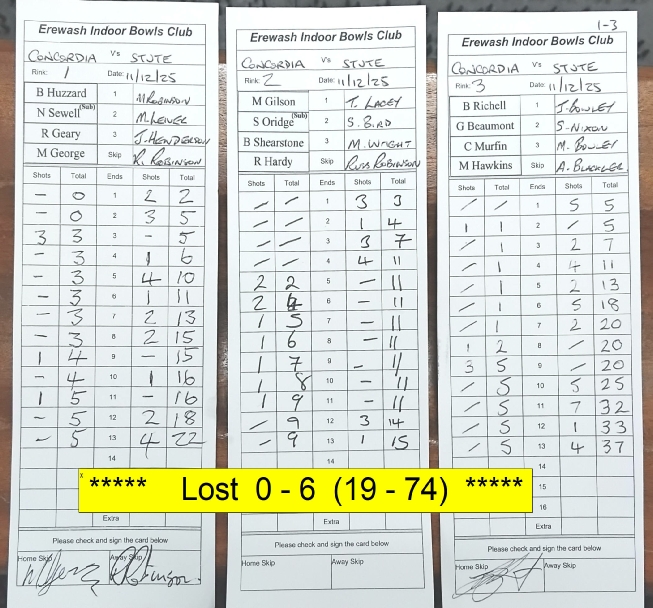 Erewash Indoor Bowls Club
CONCORDIA Vs STUTE
Rink: 1 Date: 11/12/25
B Huzzard 1 M ROBINSON
N Sewell (Sub) 2 M. LEWER
R Geary 3 J. HENDERSON
M George Skip R. ROBINSON
Shots Total Ends Shots Total
- 0 1 2 2
- 0 2 3 5
3 3 3 - 5
- 3 4 1 6
- 3 5 4 10
- 3 6 1 11
- 3 7 2 13
- 3 8 2 15
1 4 9 - 15
- 4 10 1 16
1 5 11 - 16
- 5 12 2 18
- 5 13 4 22
14
Extra
Please check and sign the card below
Home Skip Away Skip
R Robinson.
Erewash Indoor Bowls Club
CONCORDIA Vs STUTE
Rink: 2 Date: 11/12/25
M Gilson 1 T. LACEY
S Oridge (Sub) 2 S. BIRD
B Shearstone 3 M. WRIGHT
R Hardy Skip RUSS ROBINSON
Shots Total Ends Shots Total
/ / 1 3 3
/ / 2 1 4
/ / 3 3 7
/ / 4 4 11
2 2 5 - 11
2 4 6 - 11
1 5 7 - 11
1 6 8 - 11
1 7 9 - 11
1 8 10 - 11
1 9 11 - 11
/ 9 12 3 14
/ 9 13 1 15
14
Extra
Please check and sign the card below
Home Skip Away Skip
1-3
Erewash Indoor Bowls Club
CONCORDIA Vs STUTE
Rink: 3 Date: 11/12/25
B Richell 1 J. BOWLEY
G Beaumont 2 S. NIXON
C Murfin 3 M. BOWLEY
M Hawkins Skip A. BLACKLER
Shots Total Ends Shots Total
/ / 1 5 5
1 1 2 / 5
/ 1 3 2 7
/ 1 4 4 11
/ 1 5 2 13
/ 1 6 5 18
/ 1 7 2 20
1 2 8 / 20
3 5 9 / 20
/ 5 10 5 25
/ 5 11 7 32
/ 5 12 1 33
/ 5 13 4 37
14
15
16
Extra
Please check and sign the card below
Home Skip Away Skip
x ***** Lost 0 - 6 (19 - 74) *****